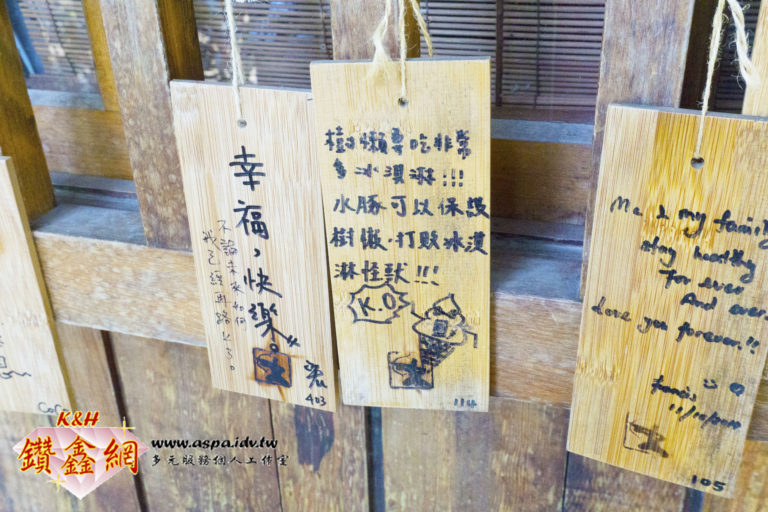 幸福,快樂。
不論未來如何
我已經在路上了。
403
樹懶要吃非常
多冰淇淋!!!
水豚可以保護
樹懶.打敗冰淇
淋怪獸!!!
K.O
114
Me & my family
stay healthy
For ever
And ever.
Love you forever.!!
105
K&H
鑽鑫網
www.aspa.idv.tw
多元服務個人工作室